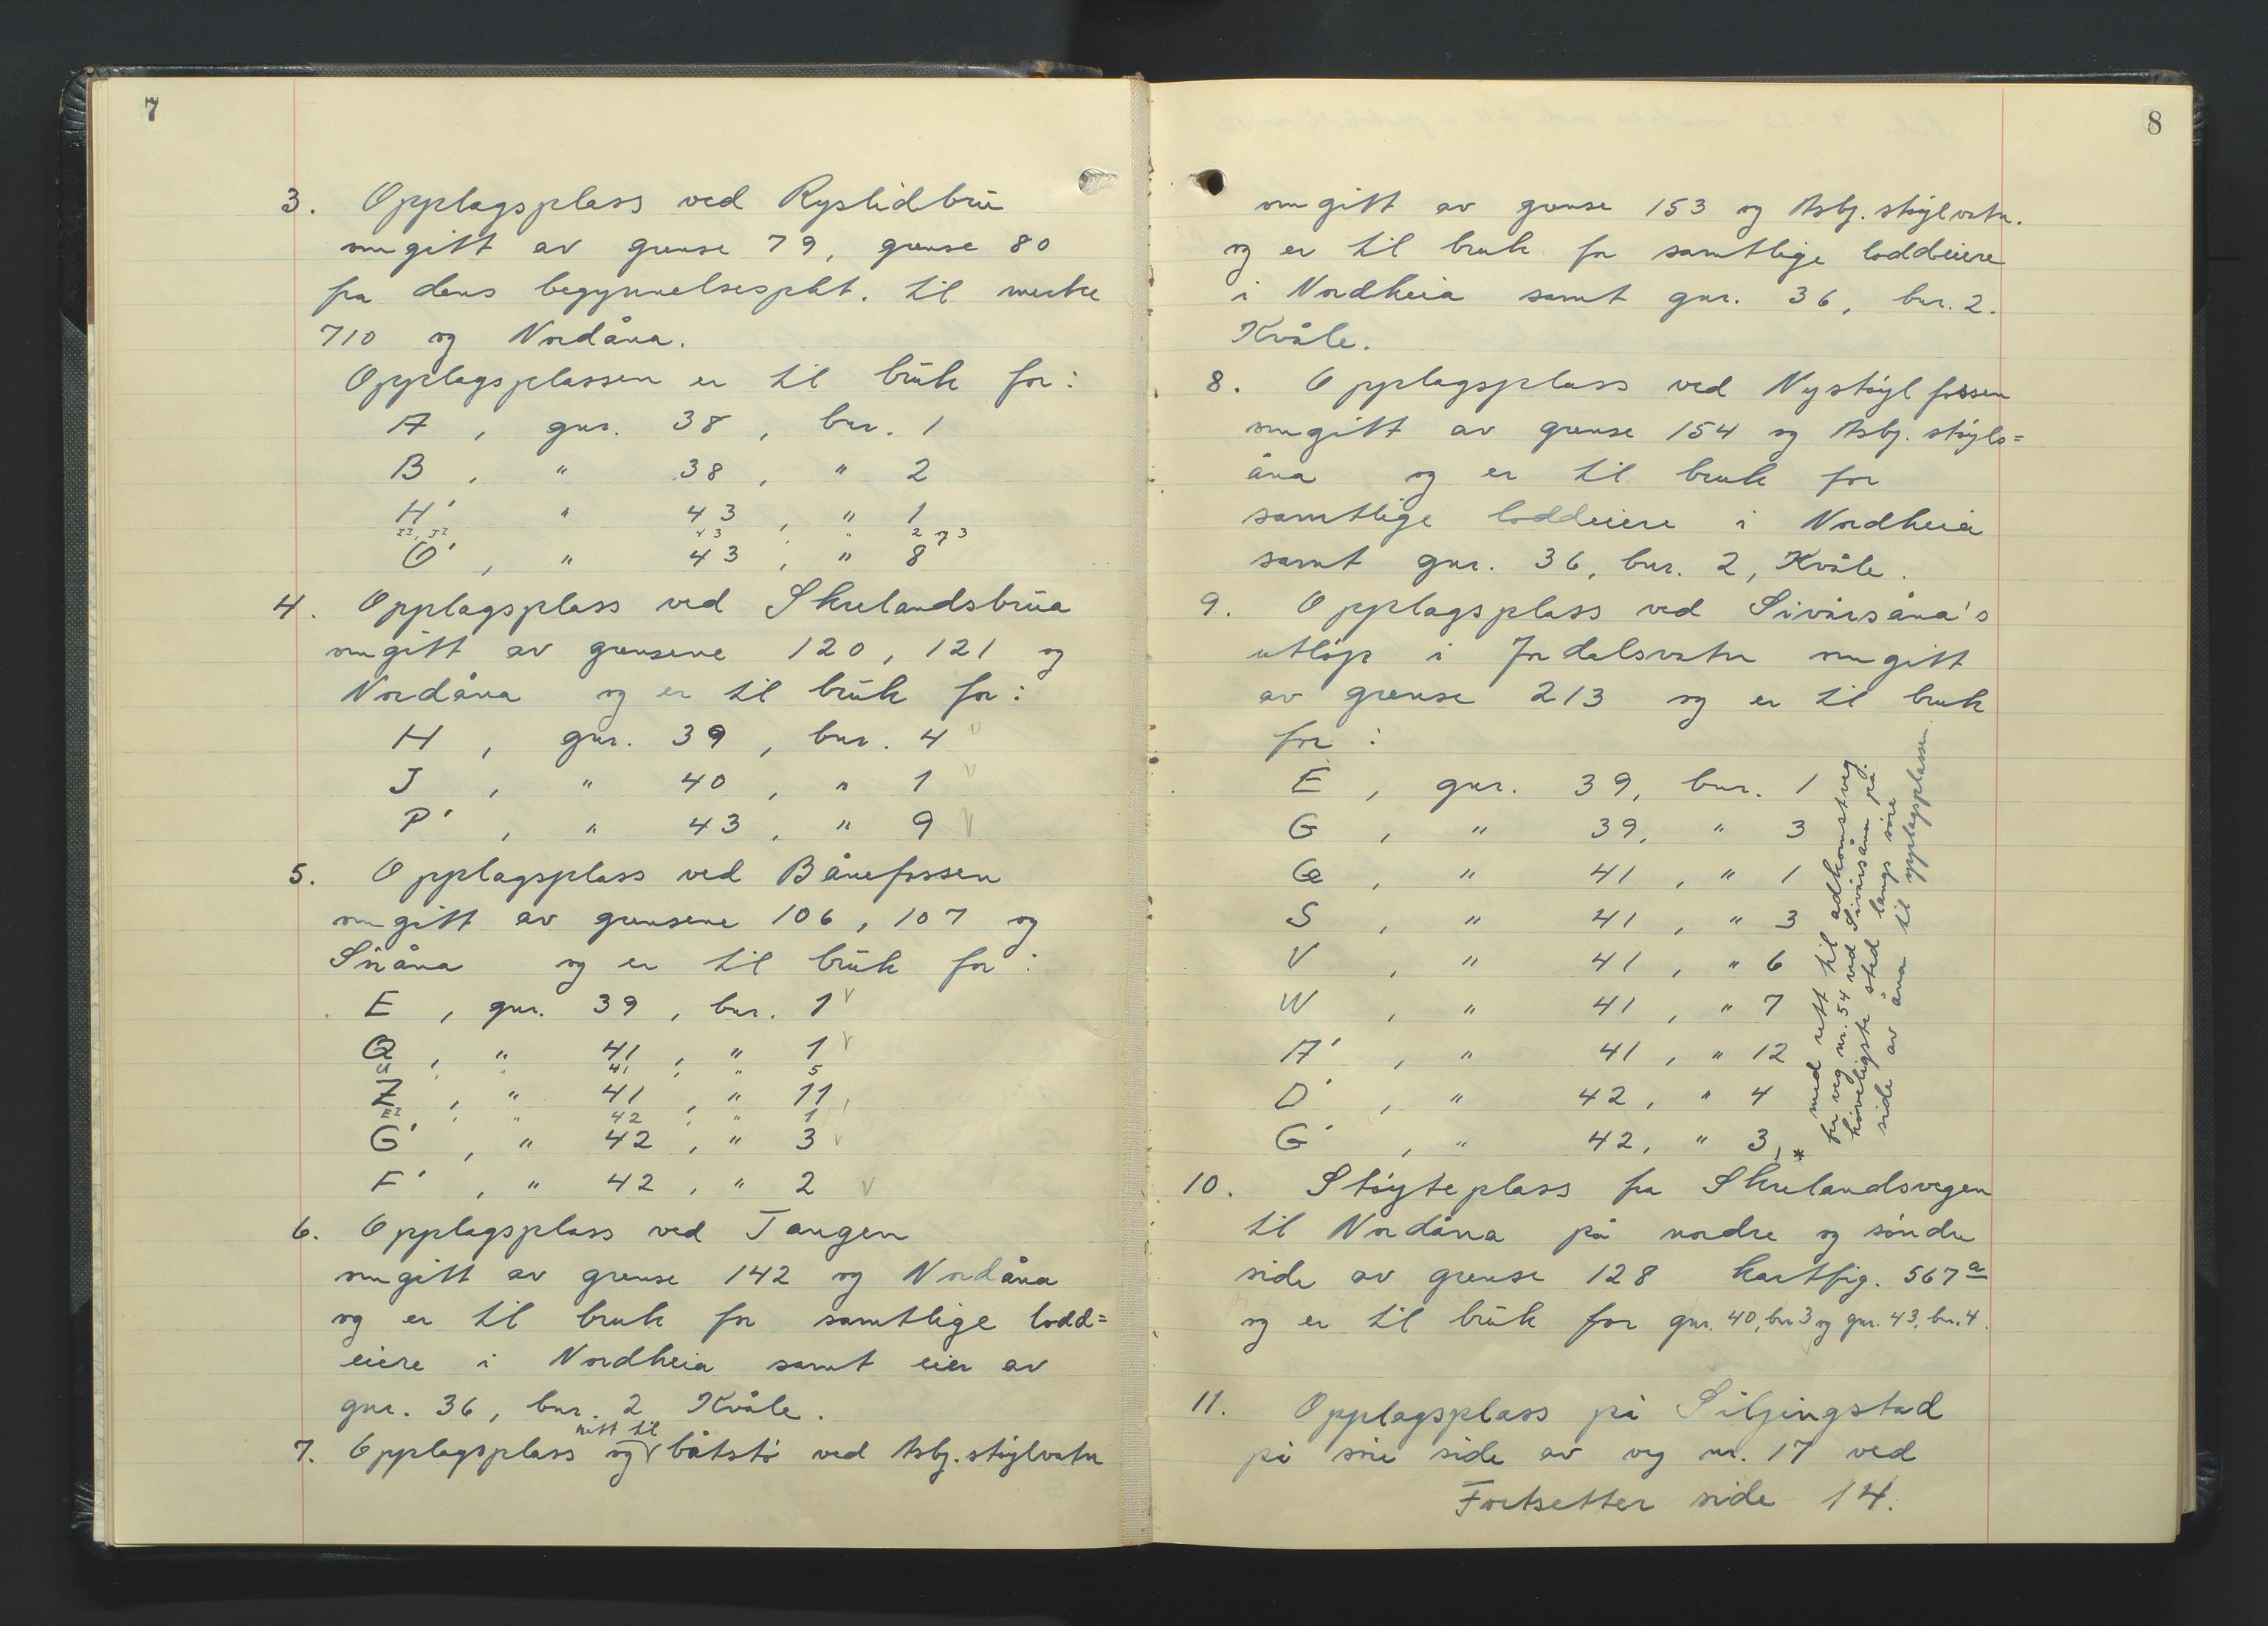 7
3. Opplagsplass ved Ryslidbrü
omgitt av grense 79, grense 80
fra dens begynnelsespkt. til merke
710 og Nordåna.
Opplagsplassen er til brük for:
A , gnr. 38 , bnr. 1
B , " 38 , " 2
H' " 43 , " 1
43 , " 2 og 3
O' , " 43 , " 8
4. Opplagsplass ved Skrelandsbrüa
omgitt av grensene 120, 121 og
Nordåna og er til brük for:
H , gnr. 39 , bnr. 4 v
J , " 40 , " 1 v
P' , " 43 , " 9 v
5. Opplagsplass ved Bånefossen
omgitt av grensene 106, 107 og
Söråna og er til brük for:
E , gnr. 39 , bnr. 1 v
Q , " 41 , " 1 v
U , " 41 , " 5
Z , " 41 , " 11
E' , " 42 , " 1
G' , " 42 , " 3 v
F' , " 42 , " 2 v
6. Opplagsplass ved Tangen
omgitt av grense 142 og Nordåna
og er til bruk for samtlige lodd=
eiere i Nordheia samt eier av
gnr. 36, bnr. 2 Kvåle.
rett til
7. Opplagsplass og v båtstö ved Asbj. stöylvatn
8
omgitt av grense 153 og Asbj. stöylvatn.
og er til bruk for samtlige loddeiere
i Nordheia samt gnr. 36, bnr. 2.
Kvåle.
8. Opplagsplass ved Nystöylfossen
omgitt av grense 154 og Asbj. stöyls=
åna og er til bruk for
samtlige loddeiere i Nordheia
samt gnr. 36, bnr. 2, Kvåle.
9. Opplagsplass ved Sivårsåna's
utlöp i Jordalsvatn omgitt
av grense 213 og er til bruk
for :
E , gnr. 39, bnr. 1
G , " 39, " 3
Q , " 41 , " 1
S , " 41 , " 3
V , " 41 , " 6
W , " 41 , " 7
A' , " 41 , " 12
D' , " 42 , " 4
G' , " 42, " 3, *
* med rett til adkomstveg
fra veg nr. 54 ved Sivårsåna på
höveligste sted langs söre
side av åna til opplagsplassen
10. Stöyteplass fra Skrelandsvegen
til Nordåna på nordre og söndre
side av grense 128 kartfig. 567a
og er til brük for gnr. 40, bnr 3 og gnr. 43, bnr. 4.
11. Opplagsplass på Siljingstad
på söre side av veg nr. 17 ved
Fortsetter side 14.